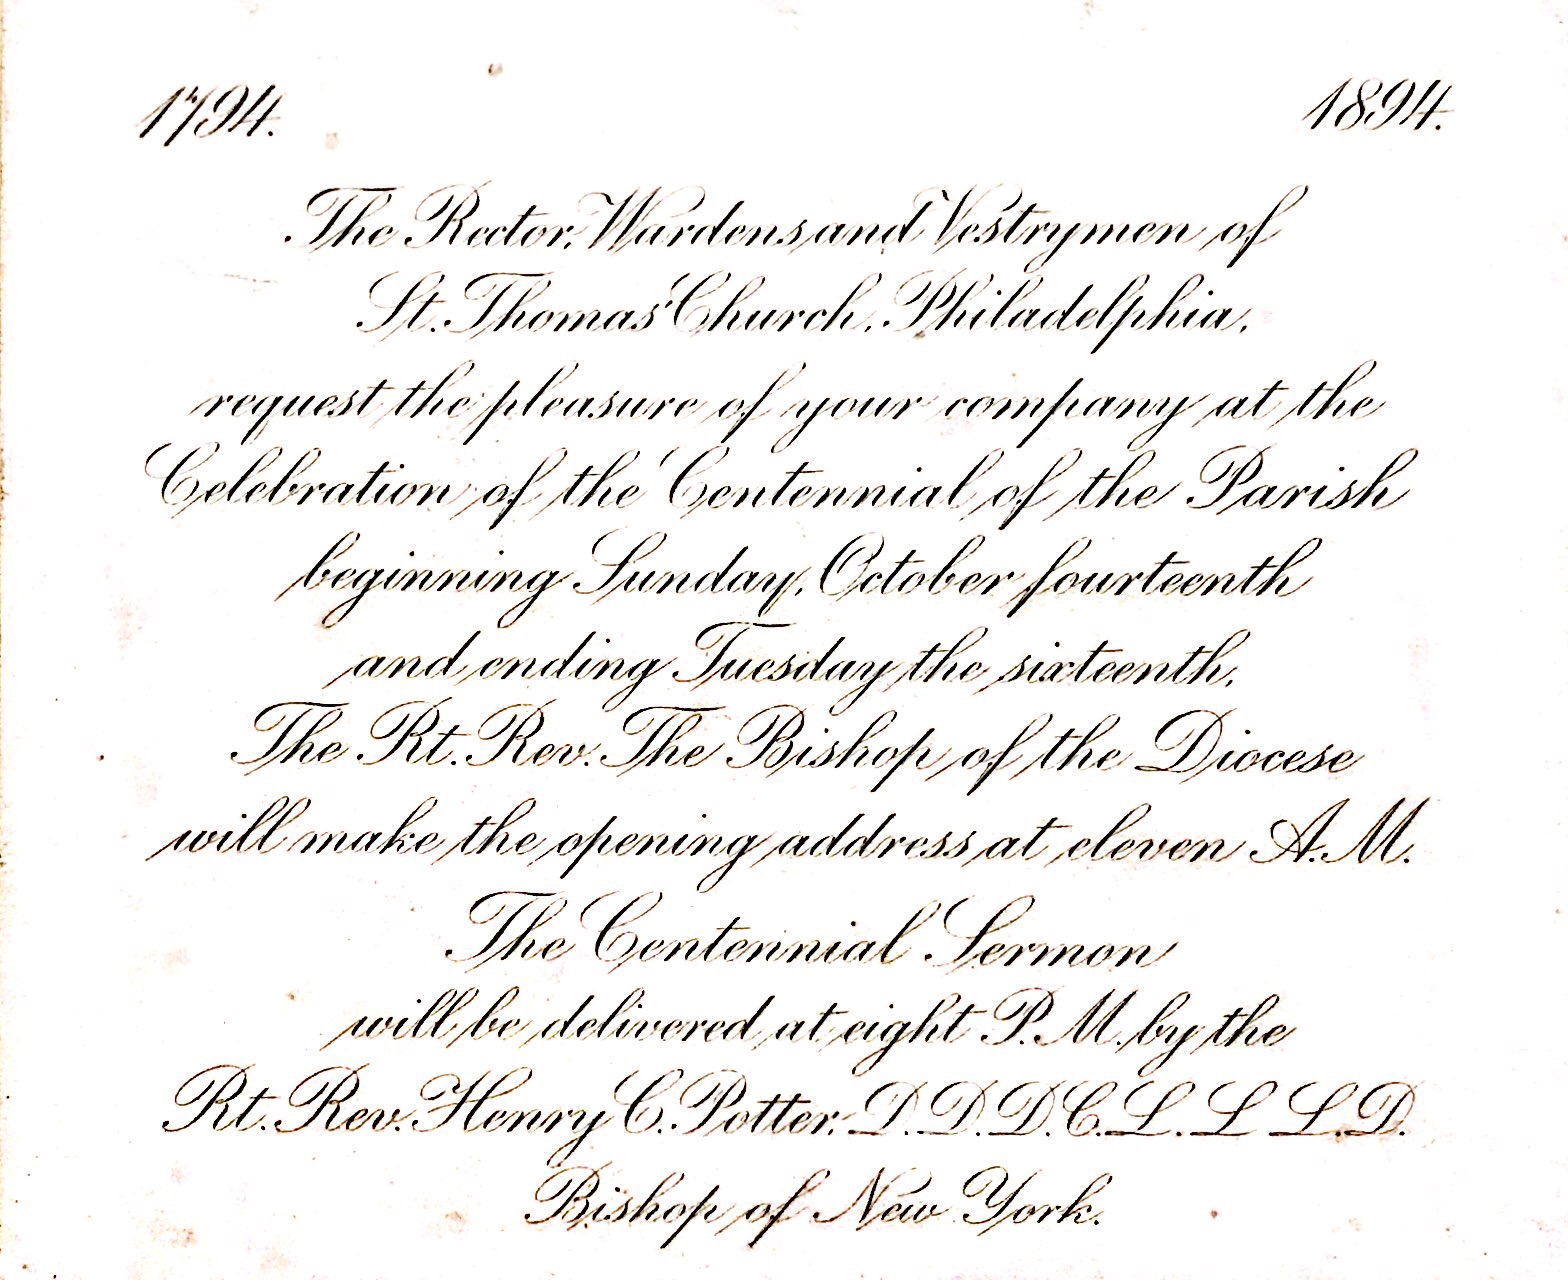 1794. 1894.
The Rector, Wardens and Vestrymen of
St. Thomas' Church, Philadelphia,
request the pleasure of your company at the
Celebration of the Centennial of the Parish
beginning Sunday, October fourteenth
and ending Tuesday the sixteenth.
The Rt. Rev. The Bishop of the Diocese
will make the opening address at eleven A.M.
The Centennial Sermon
will be delivered at eight P.M. by the
Rt. Rev. Henry C. Potter, D.D. D.C.L. L L.D.
Bishop of New York.